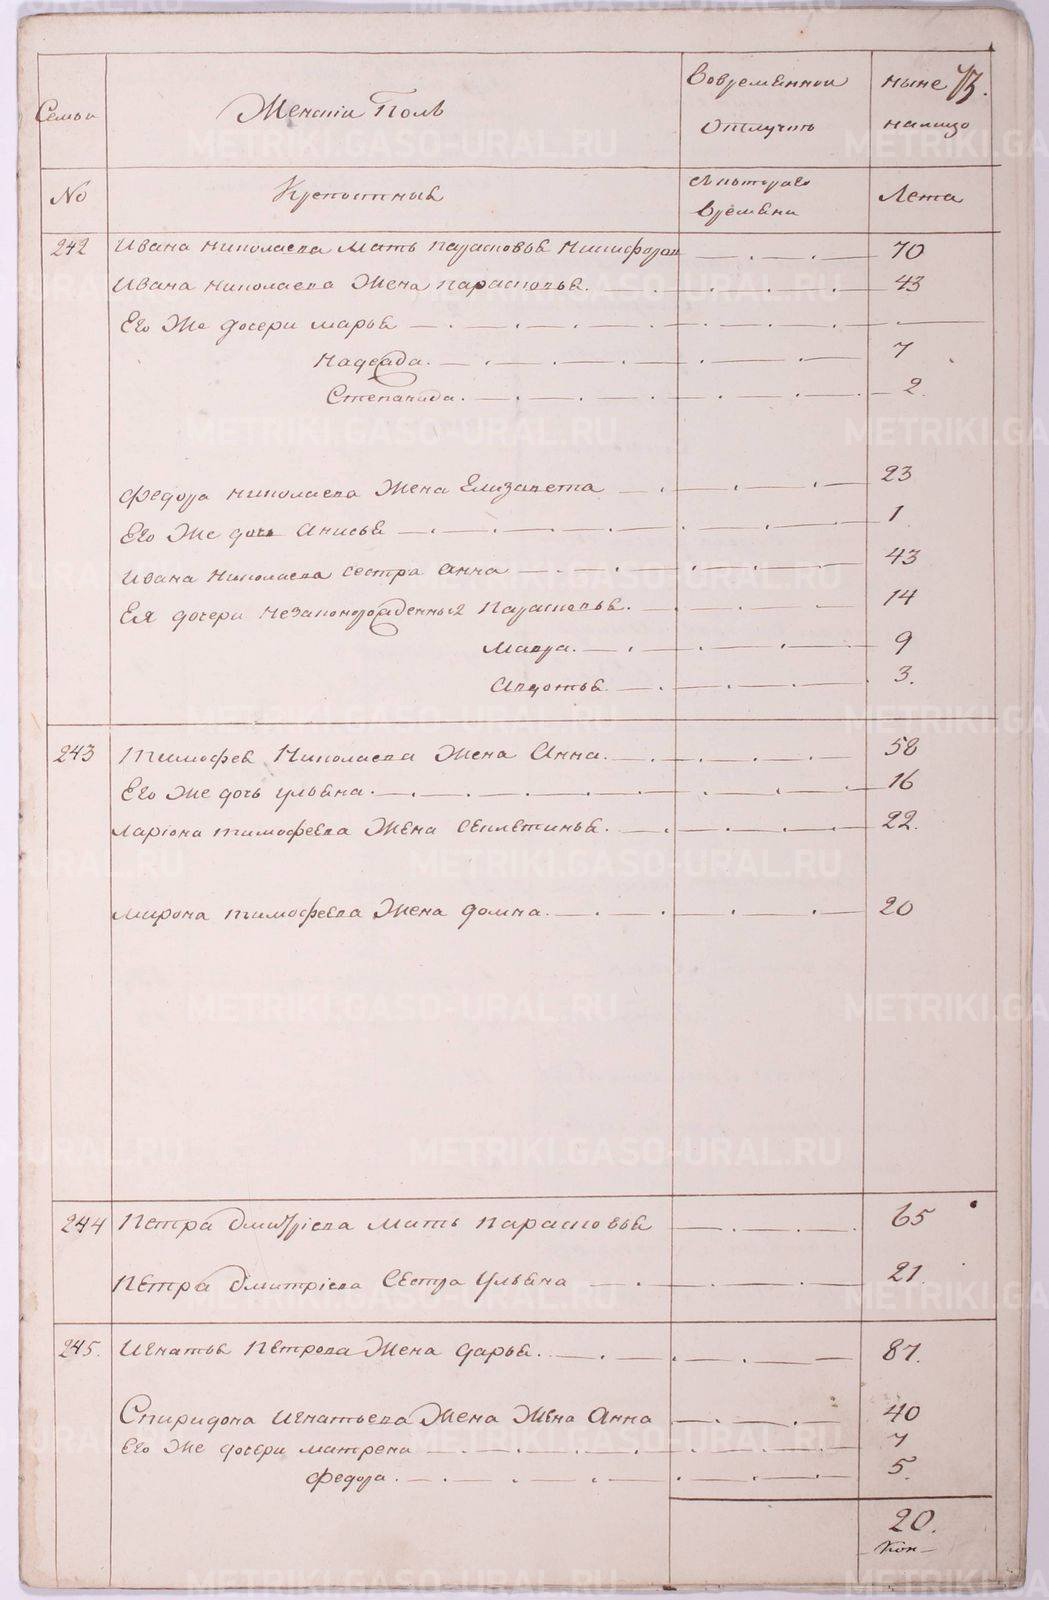 73.
Семьи
Женскiй Полъ
Вовременной
отлучкъ
ныне
налицо
No
Крепостныѣ
съкотораго
времени
Лета
242 Ивана николаева мать парасковья Никифоров 70
Ивана николаева Жена парасковья. 43
Его Же дочери марья
надежда. 7
Степанида. 2.
федора николаева Жена Елизавета 23
Его Же дочь анисья 1
ивана николаева сестра анна 43
Ея дочери незаконорожденныя парасковья. 14
Мавра. 9
авдотья. 3.
243 тимофея Николаева Жена Анна. 58
Его Же дочь ульяна. 16
ларiона тимофеева Жена секлетинья. 22.
мирона тимофеева Жена домна. 20
244 Петра дмитрiева мать парасковья 65
петра дмитрiева Сестра ульяна 21.
245. Игнатья петрова Жена дарья. 87.
Спиридона игнатьева Жена Жена Анна 40
Его Же дочери матрена 7
федора. 5.
20.
METRIKI.GASO-URAL.RU